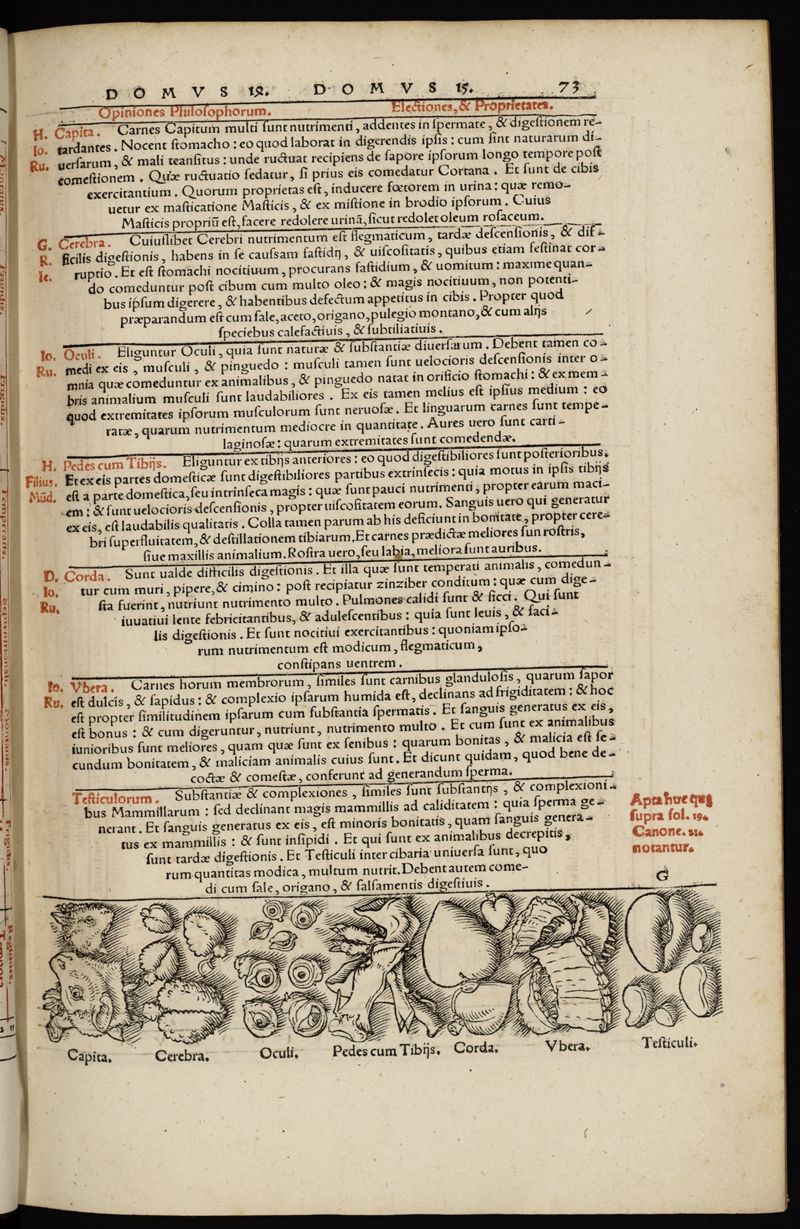 DOMVS 12. DOMVS 15. 73
Opiniones Philosophorum. Electiones, & Proprietates.
H. Capita. Carnes Capitum multi sunt nutrimenti, addentes in spermate, & digestionem re-
Io. tardantes. Nocent stomacho: eo quod laborat in digerendis ipsis: cum sint naturarum di-
Ru. uersarum, & mali transitus: unde ructuat recipiens de sapore ipsorum longo tempore post
comestionem. Quæ ructuatio sedatur, si prius eis comedatur Cortana. Et sunt de cibis
exercitantium. Quorum proprietas est, inducere fœtorem in urina: quæ remo-
uetur ex masticatione Masticis, & ex mistione in brodio ipsorum. Cuius
Masticis propriū est, facere redolere urinā, sicut redolet oleum rosaceum.
G. Cerebra. Cuiuslibet Cerebri nutrimentum est flegmaticum, tardæ descensionis, & dif-
R. ficilis digestionis, habens in se causam fastidij, & uiscositatis, quibus etiam festinat cor-
Ic. ruptio. Et est stomachi nocitiuum, procurans fastidium, & uomitum: maxime quan-
do comeduntur post cibum cum multo oleo: & magis nocitiuum, non potenti-
bus ipsum digerere, & habentibus defectum appetitus in cibis. Propter quod
præparandum est cum sale, aceto, origano, pulegio montano, & cum alijs
speciebus calefactiuis, & subtiliatiuis.
Io. Oculi. Eliguntur Oculi, quia sunt naturæ & substantiæ diuersarum. Debent tamen co-
Ru. medi ex eis, musculi, & pinguedo: musculi tamen sunt uelocioris descensionis inter o-
mnia quæ comeduntur ex animalibus, & pinguedo natat in orificio stomachi: & ex mem-
bris animalium musculi sunt laudabiliores. Ex eis tamen melius est ipsius medium: eo
quod extremitates ipsorum musculorum sunt neruosæ. Et linguarum carnes sunt tempe-
ratæ, quarum nutrimentum mediocre in quantitate. Aures uero sunt carti-
laginosæ: quarum extremitates sunt comedendæ.
H. Pedes cum Tibijs. Eliguntur ex tibijs anteriores: eo quod digestibiliores sunt posterioribus.
Filius. Et ex eis partes domesticæ sunt digestibiliores partibus extrinsecis: quia motus in ipsis tibijs
Mūd. est a parte domestica, seu intrinseca magis: quæ sunt pauci nutrimenti, propter earum maci-
em: & sunt uelocioris descensionis, propter uiscositatem eorum. Sanguis uero qui generatur
ex eis, est laudabilis qualitatis. Colla tamen parum ab his deficiunt in bonitate, propter cere-
bri superfluitatem, & destillationem tibiarum. Et carnes prædictæ meliores sun rostris,
siue maxillis animalium. Rostra uero, seu labia, meliora sunt auribus.
D. Corda. Sunt ualde difficilis digestionis. Et illa quæ sunt temperati animalis, comedun-
Io. tur cum muri, pipere, & cimino: post recipiatur zinziber conditum: quæ cum dige-
Ru. sta fuerint, nutriunt nutrimento multo. Pulmones calidi sunt & sicci. Qui sunt
iuuatiui lente febricitantibus, & adulescentibus: quia sunt leuis, & faci-
lis digestionis. Et sunt nocitiui exercitantibus: quoniam ipso-
rum nutrimentum est modicum, flegmaticum,
constipans uentrem.
Io. Vbera. Carnes horum membrorum, similes sunt carnibus glandulosis, quarum sapor
Ru. est dulcis, & sapidus: & complexio ipsarum humida est, declinans ad frigiditatem: & hoc
est propter similitudinem ipsarum cum substantia spermatis. Et sanguis generatus ex eis,
est bonus: & cum digeruntur, nutriunt, nutrimento multo. Et cum sunt ex animalibus
iunioribus sunt meliores, quam quæ sunt ex senibus: quarum bonitas, & malicia est se-
cundum bonitatem, & maliciam animalis cuius sunt. Et dicunt quidam, quod bene de-
coctæ & comestæ, conferunt ad generandum sperma.
Testiculorum. Substantiæ & complexiones, similes sunt substantijs, & complexioni-
bus Mammillarum: sed declinant magis mammillis ad caliditatem: quia sperma ge-
nerant. Et sanguis generatus ex eis, est minoris bonitatis, quam sanguis genera-
tus ex mammillis: & sunt insipidi. Et qui sunt ex animalibus decrepitis,
sunt tardæ digestionis. Et Testiculi inter cibaria uniuersa sunt, quo
rum quantitas modica, multum nutrit. Debent autem come-
di cum sale, origano, & salsamentis digestiuis.
supra fol. 19.
Canone.
notantur.
G
Capita. Cerebra. Oculi. Pedes cum Tibijs. Corda. Vbera. Testiculi.